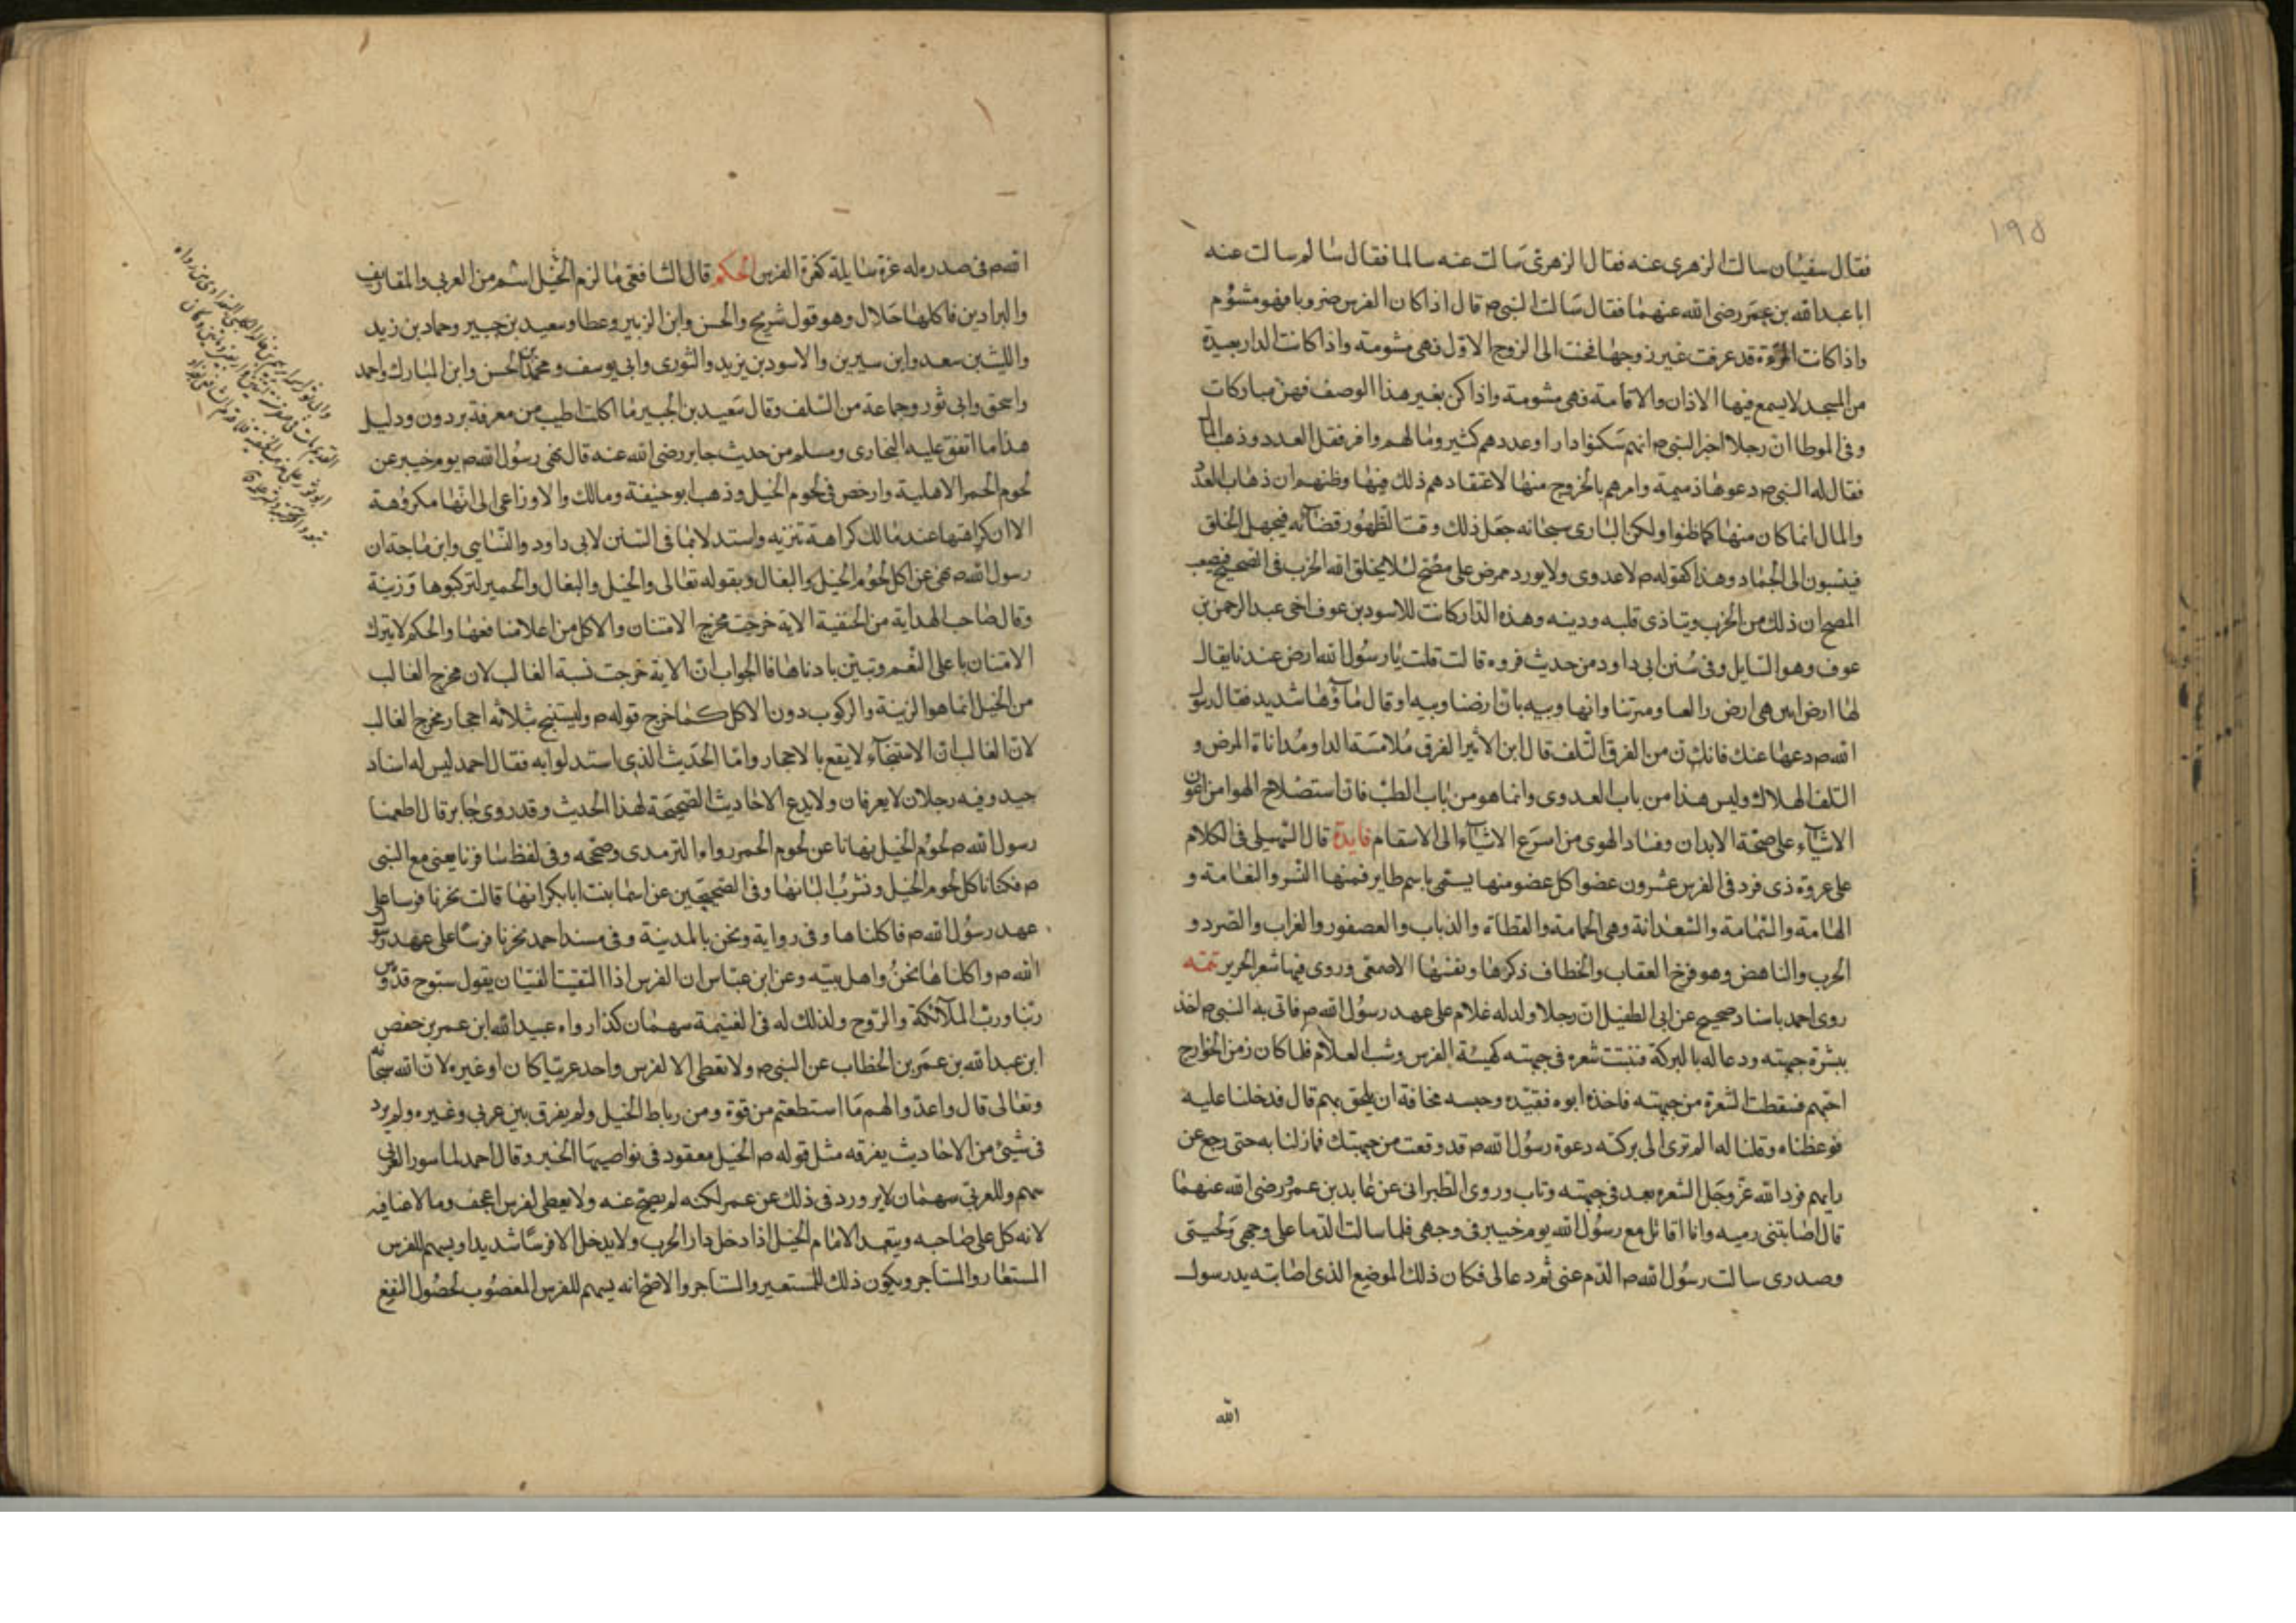 ١٩٥
فقال سفيان سالت الزهرى عنه فقال الزهرى سالت عنه سالما فقال سالم سالت عنه
ابا عبدالله بن عمر رضى الله عنهما فقال سالت النبى ص قال اذا كان الفرس ضروبا فهو مشؤم
واذا كانت المرءة قد عرفت غير زوجها فحنت الى الزوج الاول فهى مشومة واذا كانت الدار بعيدة
من المسجد لا يسمع فيها الاذان والاقامة فهى مشومة واذا كن بغير هذا الوصف فهن مباركات
وفى الموطا ان رجلا اخبر النبى ص انهم سكنوا دارا وعددهم كثير ومالهم وافر فقل العدد وذهب المال
فقال له النبى ص دعوها ذميمة وامرهم بالخروج منها لاعتقادهم ذلك فيها وظنهم ان ذهاب العدد
والمال انما كان منها كما ظنوا ولكن البارى سبحانه جعل ذلك وقت الظهور قضآئه فيجهل الخلق
فينسبون الى الجماد وهذا كقوله ص لاعدوى ولا يورد ممرض على مصح لئلا يخلق الله الجرب فى الصحيح فيصب
المصح ان ذلك من الجرب ويتاذى قلبه ودينه وهذه الدار كانت للاسود بن عوف اخى عبدالرحمن بن
عوف وهو السايل وفى سنن ابى داود من حديث فروه قالت قلت يا رسول الله ارض عندنا يقال
لها ارض ابين هى ارض رالعا وميرتنا وانها وبيه بان ارضنا وبيه او قال مآؤها شديد فقال رسول
الله ص دعها عنك فانك ن من الفرق التلف قال ابن الأثير الفرق ملامسة الدا ومداناة المرض و
التلف الهلاك وليس هذا من باب العدوى وانما هو من باب الطب فان استصلاح الهوا من اعون
الاشيآء على صحة الابدان وفساد الهوى من اسرع الاشيآء الى الاسقام فايدة قال السهيلى فى الكلام
على عروة ذى فرد فى الفرس عشرون عضوا كل عضو منها يسمى باسم طاير فمنها النسر والنعامة و
الهامة والسمامة والسعدانة وهى الحمامة والقطاة والذباب والعصفور والغراب والصرد و
الحرب والناهض وهو فرخ العقاب والخطاف ذكرها وبقيتها الاصمعى وروى فيها شعر الجرير تتمه
روى احمد باسناد صحيح عن ابى الطفيل ان رجلا ولد له غلام على عهد رسول الله ص فاتى به النبى ص اخذ
ببشرة جبهته ودعا له بالبركة فنبتت شعره فى جبهته كهيئة الفرس وشب الغلام فلما كان زمن الخوارج
احبهم فسقطت الشعرة من جبهته فاخذه ابوه فقيده وحبسه مخافة ان يلحق بهم قال فدخلنا عليه
فوعظناه وقلنا له الم ترى الى بركته دعوة رسول الله ص قد وقعت من جبهتك فما زلنا به حتى رجع عن
رايهم فرد الله عز وجل الشعره بعد فى جبهته وتاب وروى الطبرانى عن عايد بن عمرو رضى الله عنهما
قال اصابتنى رميه وانا اقاتل مع رسول الله يوم خيبر فى وجهى فلما سالت الدما على وجهى ولحيتى
وصدرى سالت رسول الله ص الدم عنى ثم دعا لى فكان ذلك الموضع الذى اصابته يد رسول
الله
الله ص فى صدره له غرة سايلة كغرة الفرس الحكم قال الشافعى ما لزم الخيل اسم من العربى والمقاريف
والبرادين فاكلها حلال وهو قول شريح والحسن وابن الزبير وعطا وسعيد بن جبير وحماد بن زيد
والليث بن سعد وابن سيرين والاسود بن يزيد والثورى وابى يوسف ومحمد بن الحسن وابن المبارك واحمد
واسحق وابى ثور وجماعة من السلف وقال سعيد بن الجبير ما اكلت اطيب من معرفة بردون ودليل
هذا ما اتفق عليه البخارى ومسلم من حديث جابر رضى الله عنه قال نهى رسول الله ص يوم خيبر عن
لحوم الحمر الاهلية وارخص فى لحوم الخيل وذهب ابو حنيفة ومالك والاوزاعى الى انها مكروهة
الا ان كراهتها عند مالك كراهة تنزيه واستدلا بما فى السنن لابى داود والنساىى وابن ماجة ان
رسول الله ص نهى عن اكل لحوم الخيل والبغال وبقوله تعالى والخيل والبغال والحمير لتركبوها وزينة
وقال صاحب الهداية من الحنفية الاية خرجت مخرج الامتنان والاكل من اعلا منافعها والحكم لا يترك
الامتنان با على النعم وتبين بادناها فالجواب ان الاية خرجت نسبة الغالب لان مخرج الغالب
من الخيل انما هو الزينة والركوب دون الاكل كما خرج قوله ص وليستنج بثلاثه احجار مخرج الغالب
لان الغالب ان الاستنجآء لا يقع بالاحجار واما الحديث الذى استدلوا به فقال احمد ليس له اسناد
جيد وفيه رجلان لا يعرفان ولا يدع الاحاديث الصحيحة لهذا الحديث وقد روى جابر قال اطعمنا
رسول الله ص لحوم الخيل ونهانا عن لحوم الحمر رواه الترمدى وصححه وفى لفظ سافرنا يعنى مع النبى
ص فكنا ناكل لحوم الخيل ونشرب البانها وفى الصحيحين عن اسما بنت ابابكر انها قالت نحرنا فرسا على
عهد رسول الله ص فاكلناها وفى رواية ونحن بالمدينة وفى مسند احمد نحرنا فرسا على عهد رسول
الله ص واكلناها نحن واهل بيته وعن ابن عباس ان الفرس اذا التقيتا لفيتان يقول سبوح قدوس
ربنا ورب الملآئكة والروح ولذلك له فى الغنيمة سهمان كذا رواه عبيد الله ابن عمر بن حفص
ابن عبدالله بن عمر بن الخطاب عن النبى ص ولا تعطى الا لفرس واحد عربيا كان او غيره لان الله سبحانه
وتعالى قال واعدوا لهم ما استطعتم من قوة ومن رباط الخيل ولم يفرق بين عربى وغيره ولم يرد
فى شيئ من الاحاديث يفرقه مثل قوله ص الخيل معقود فى نواصيها الخير وقال احمد لما سور العربى
سهم وللعربى سهمان لا ير ورد فى ذلك عن عمر لكنه لم يصح عنه ولا يعطى لفرس اعجف وما لا غنا فيه
لانه كل على صاحبه ويتعهد الامام الخيل اذا دخل دار الحرب ولا يدخل الا فرسا شديدا ويسهم للفرس
المستعار والمستاجر ويكون ذلك للمستعير والمستاجر والاصح انه يسهم للفرس المغصوب لحصول النفع